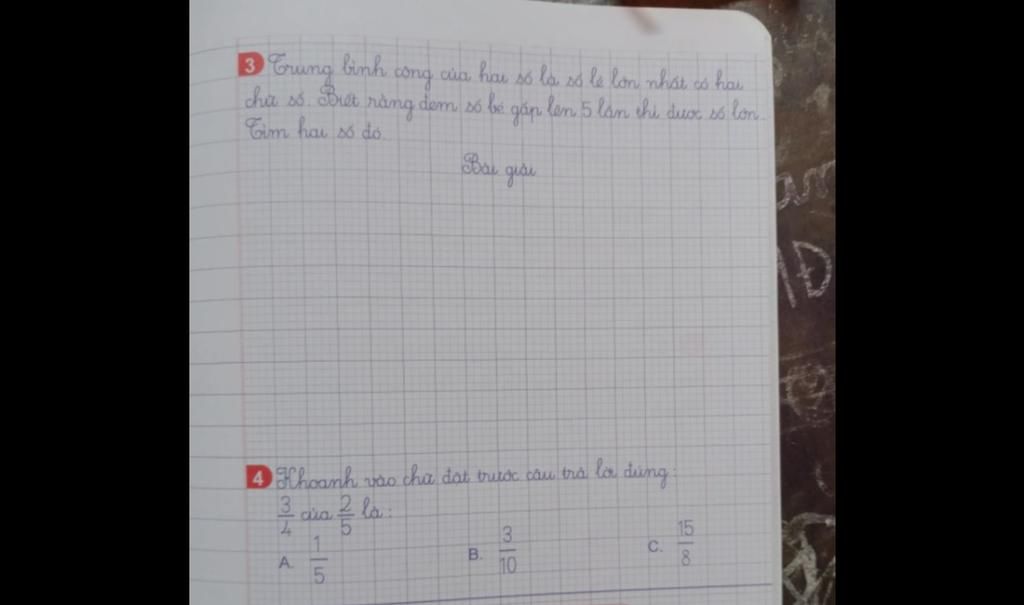 3 Trung bình cộng của hai số là số lẻ lớn nhất có hai
chữ số. Biết rằng đem số bé gấp lên 5 lần thì được số lớn.
Tìm hai số đó.
Bài giải
4 Khoanh vào chữ đặt trước câu trả lời đúng:
3/4 của 2/5 là:
A. 1/5 B. 3/10 C. 15/8